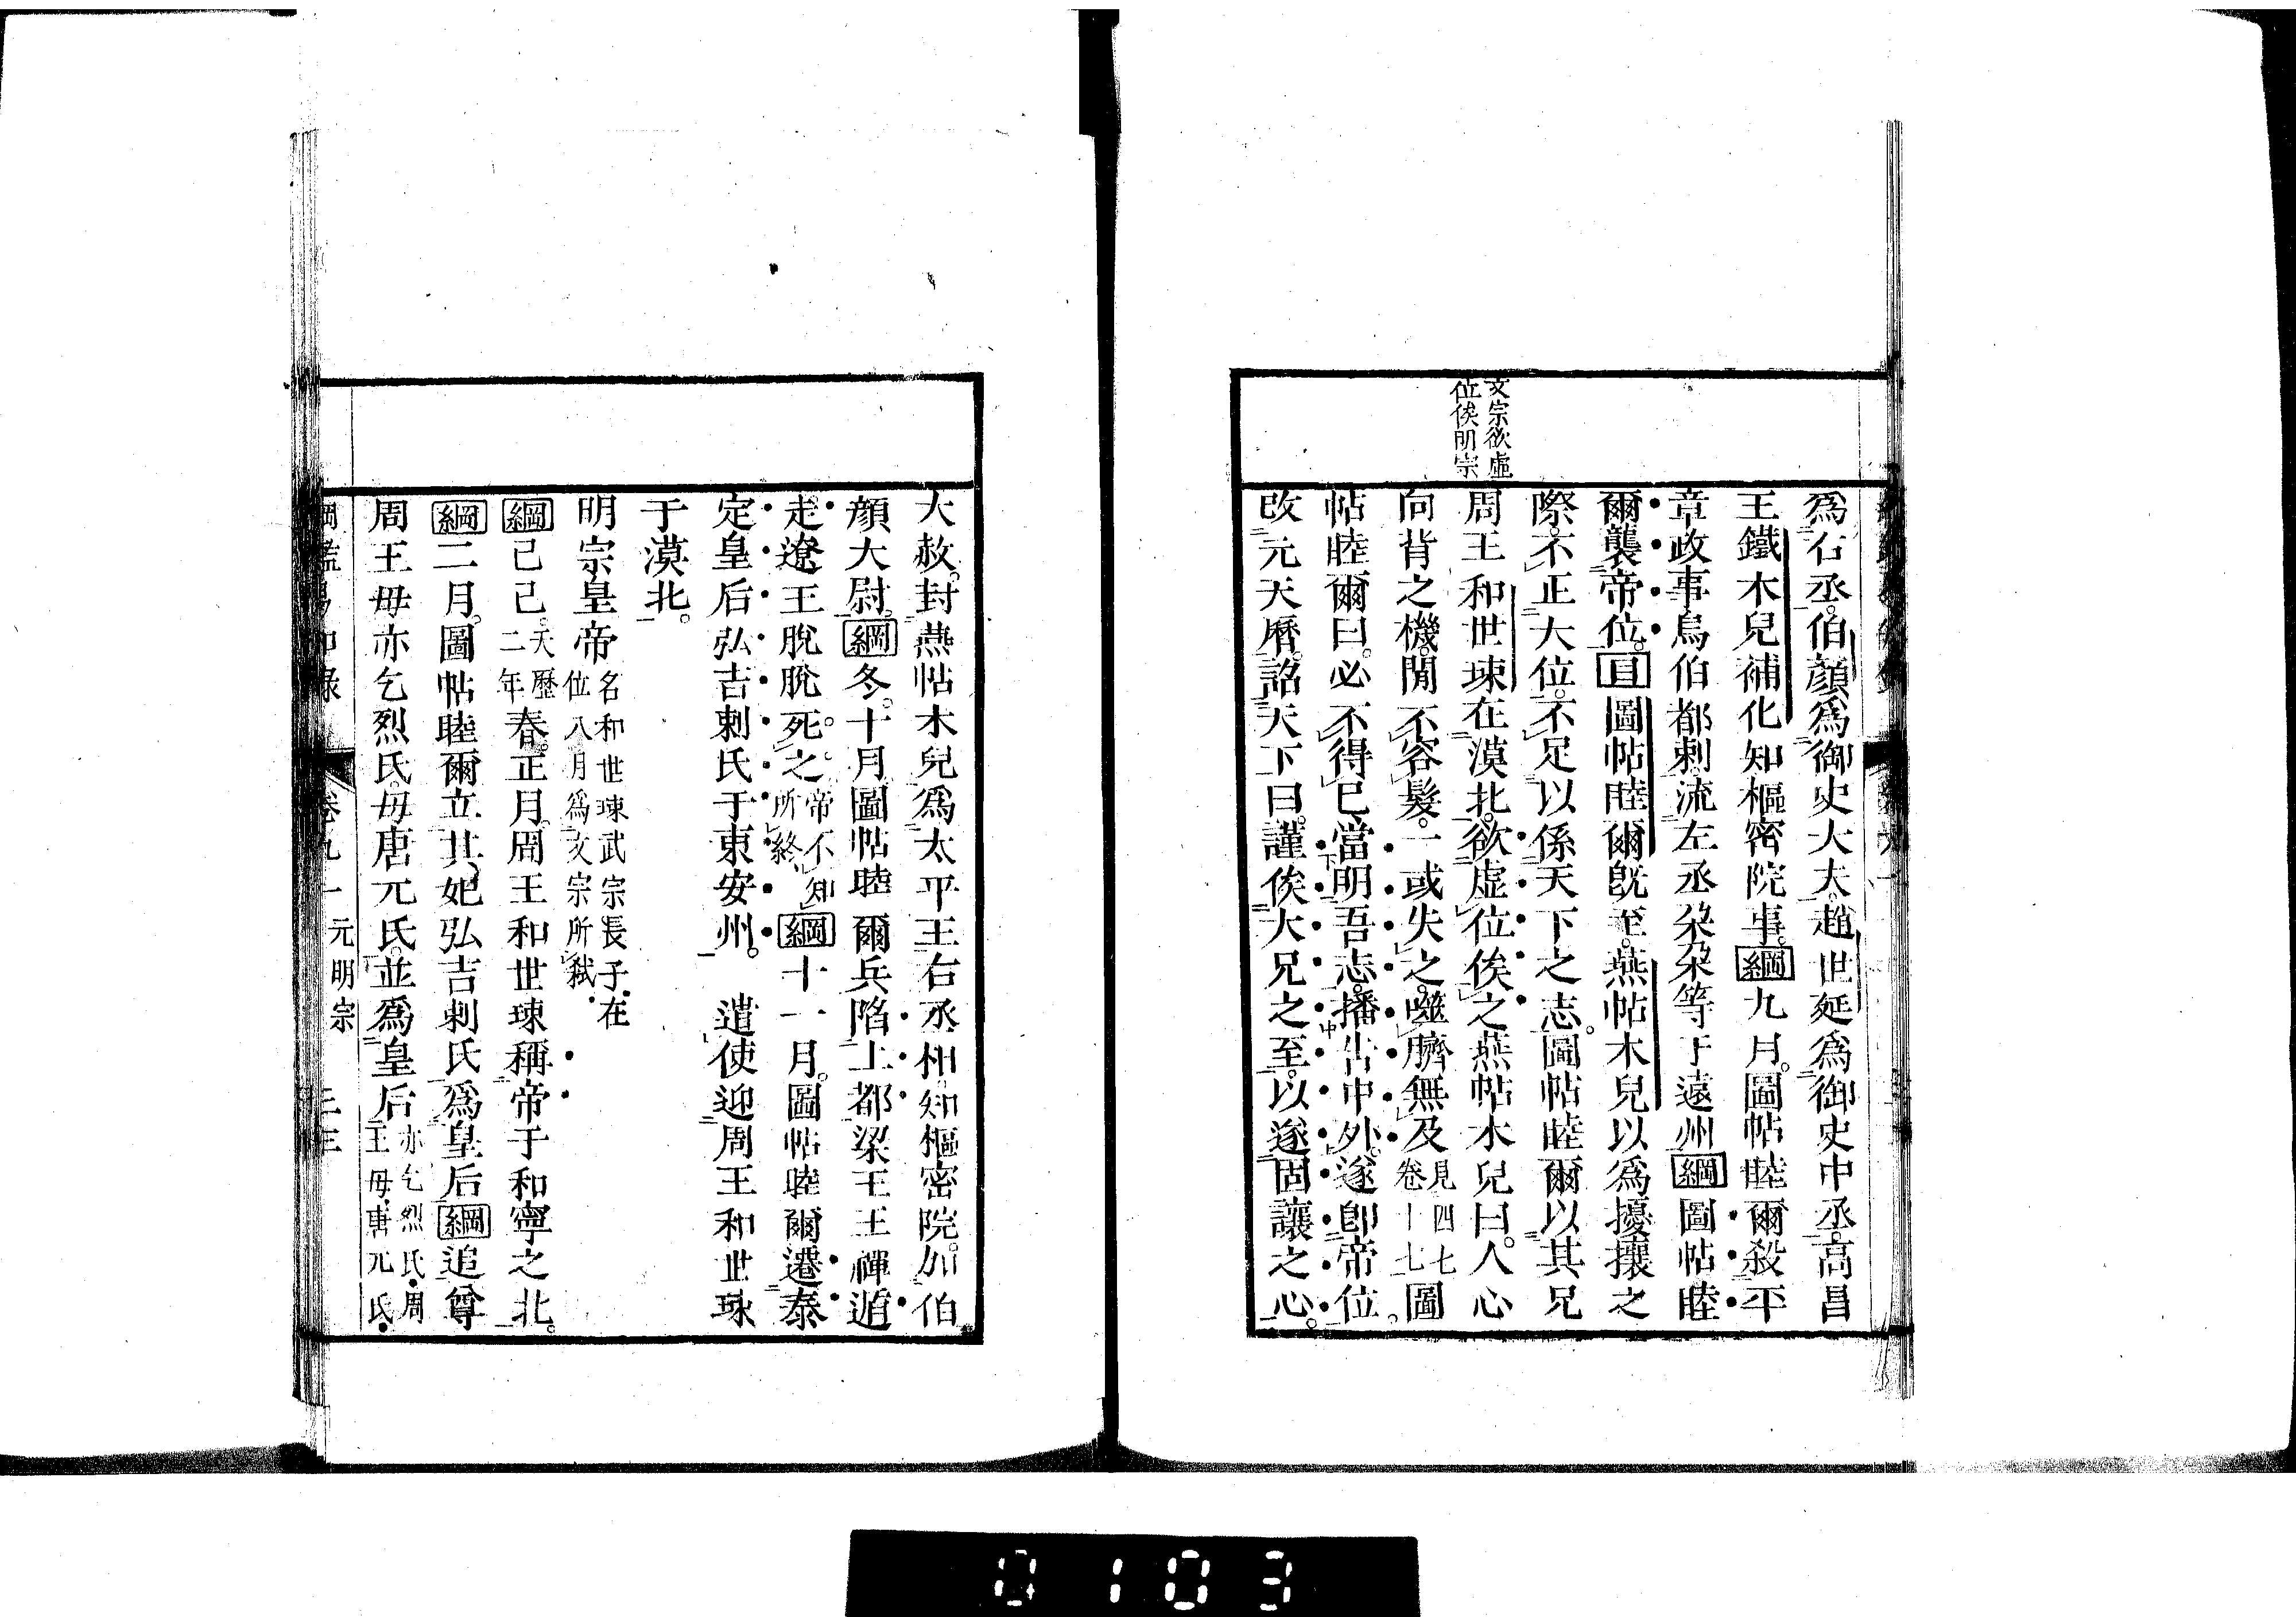 文宗欲虛
位俟明宗
爲右丞。伯顏爲御史大夫。趙世延爲御史中丞。高昌
王鐵木兒補化知樞密院事。綱九月。圖帖睦爾殺平
章政事烏伯都剌流左丞朶朶等于遠州綱圖帖睦
爾襲帝位。目圖帖睦爾旣至。燕帖木兒以爲擾攘之
際。不正大位。不足以係天下之志。圖帖睦爾以其兄
周王和世㻋在漠北。欲虛位俟之燕帖木兒曰。人心
向背之機。閒不容髮。一或失之。噬臍無及見四七卷十七圖
帖睦爾曰。必不得已當明吾志。播告中外。遂卽帝位。
改元天曆。詔天下曰。謹俟大兄之至。以遂固讓之心。
大赦。封燕帖木兒爲太平王右丞相知樞密院。加伯
顏大尉。綱冬。十月圖帖睦爾兵陷上都梁王王禪遁
走。遼王脫脫死之帝不知所終綱十一月。圖帖睦爾遷泰
定皇后弘吉剌氏于東安州。遣使迎周王和世㻋
于漠北。
明宗皇帝名和世㻋武宗長子在位八月爲文宗所弑
綱己巳。天曆二年春。正月。周王和世㻋稱帝于和寧之北。
綱二月。圖帖睦爾立其妃弘吉剌氏爲皇后綱追尊
周王母亦乞烈氏。母唐兀氏。並爲皇后亦乞烈氏周王母唐兀氏
綱鑑易知錄 卷九一 元明宗
0103